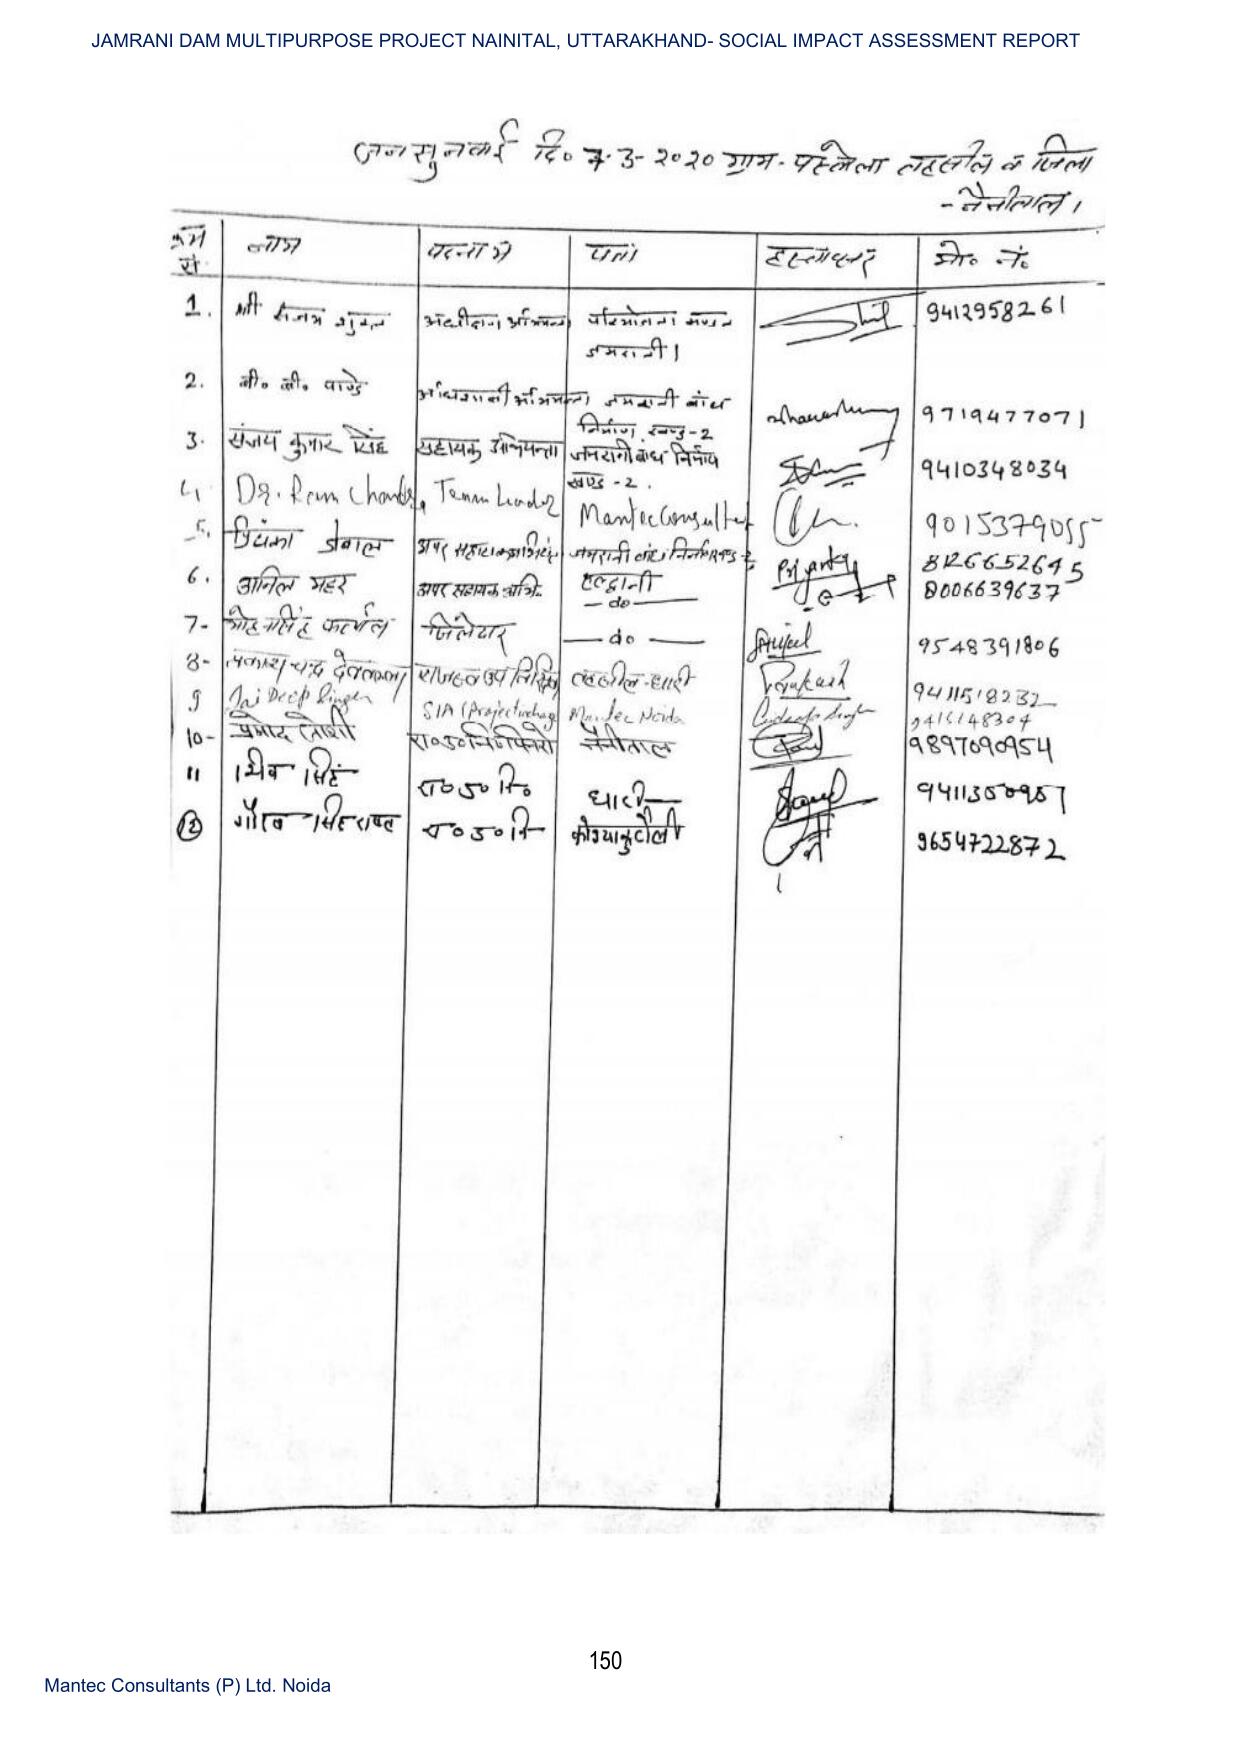 JAMRANI DAM MULTIPURPOSE PROJECT NAINITAL, UTTARAKHAND- SOCIAL IMPACT ASSESSMENT REPORT
जनसुनवाई दि० 7-3-2020 ग्राम- तहसील व जिला
- नैनीताल।
क्रम सं. नाम पदनाम पता हस्ताक्षर मो० नं०
1. श्री संजय शुक्ल अधीक्षण अभियन्ता परियोजना मण्डल 9412958261
जमरानी।
2. बी० बी० पाण्डे अधिशासी अभियन्ता जमरानी बांध 9719477071
निर्माण खण्ड-2
3. संजय कुमार सिंह सहायक अभियन्ता जमरानी बांध निर्माण 9410348034
खण्ड-2.
4 Dr. Ram Chandra, Team Leader Mantec Consultant 9015379055
5. प्रियंका अपर सहायक अभियंता जमरानी बांध निर्माण खण्ड-2 Priyanka 8126652645
हल्द्वानी
6. अनिल महर अपर सहायक अभि. — do — 8006639637
7- मोहन सिंह जिलेदार — do — 9548391806
8- प्रकाश चन्द्र देवतल्ला राजस्व उप निरीक्षक तहसील-धारी Prakash 9411518232
9 Jai Deep Singh SIA (Project Mantec Noida
10- प्रमोद जोशी रा०उ०नि० नैनीताल 9897090954
11 शिव सिंह रा०उ०नि० धारी
12 गौरव सिंह रावत रा०उ०नि कोश्याकुटौली 9654722872
150
Mantec Consultants (P) Ltd. Noida